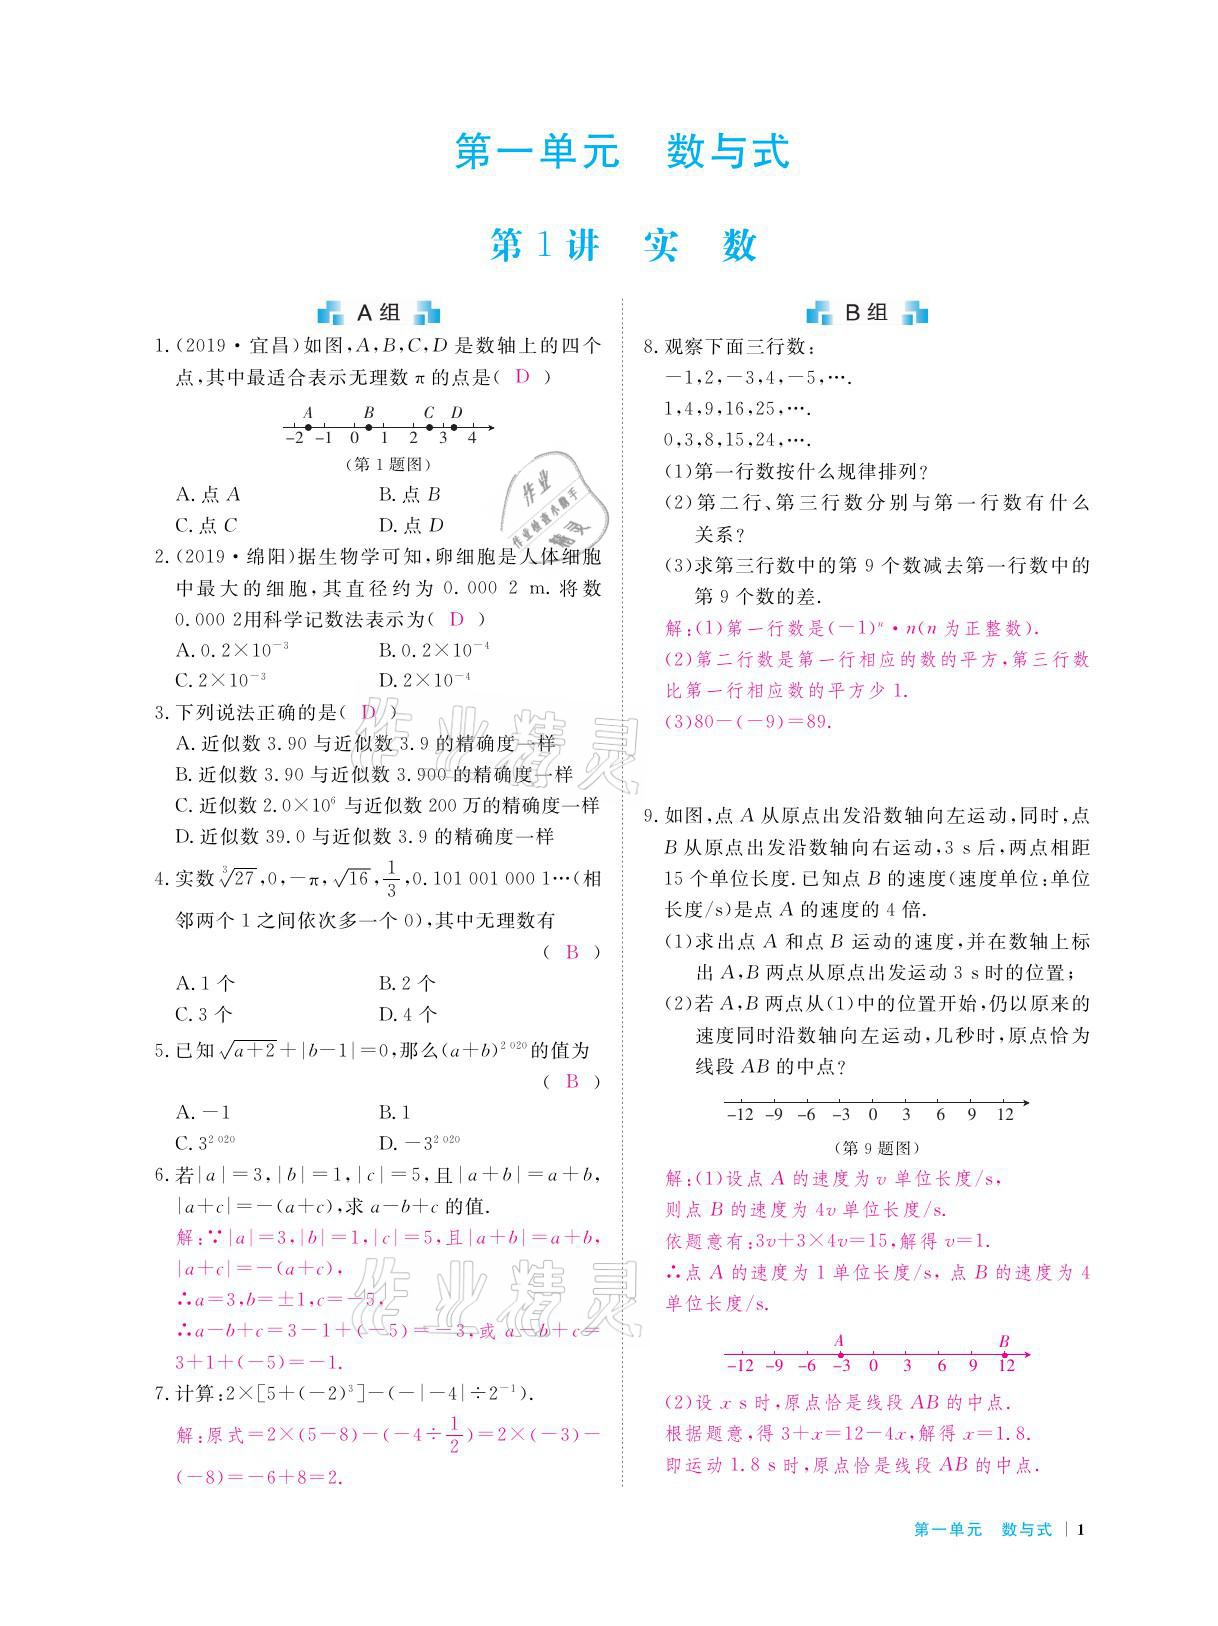 第一单元 数与式
第1讲 实 数
A组
1.(2019·宜昌)如图,A,B,C,D是数轴上的四个
点,其中最适合表示无理数π的点是( D )
A B C D
-2 -1 0 1 2 3 4
(第1题图)
A.点A B.点B
C.点C D.点D
2.(2019·绵阳)据生物学可知,卵细胞是人体细胞
中最大的细胞,其直径约为0.000 2 m.将数
0.000 2用科学记数法表示为( D )
A.0.2×10⁻³ B.0.2×10⁻⁴
C.2×10⁻³ D.2×10⁻⁴
3.下列说法正确的是( D )
A.近似数3.90与近似数3.9的精确度一样
B.近似数3.90与近似数3.900的精确度一样
C.近似数2.0×10⁶与近似数200万的精确度一样
D.近似数39.0与近似数3.9的精确度一样
4.实数∛27,0,-π,√16,1/3,0.101 001 000 1…(相
邻两个1之间依次多一个0),其中无理数有
( B )
A.1个 B.2个
C.3个 D.4个
5.已知√(a+2)+|b-1|=0,那么(a+b)²⁰²⁰的值为
( B )
A.-1 B.1
C.3²⁰²⁰ D.-3²⁰²⁰
6.若|a|=3,|b|=1,|c|=5,且|a+b|=a+b,
|a+c|=-(a+c),求a-b+c的值.
解:∵|a|=3,|b|=1,|c|=5,且|a+b|=a+b,
|a+c|=-(a+c),
∴a=3,b=±1,c=-5,
∴a-b+c=3-1+(-5)=-3,或a-b+c=
3+1+(-5)=-1.
7.计算:2×[5+(-2)³]-(-|-4|÷2⁻¹).
解:原式=2×(5-8)-(-4÷1/2)=2×(-3)-
(-8)=-6+8=2.
B组
8.观察下面三行数:
-1,2,-3,4,-5,….
1,4,9,16,25,….
0,3,8,15,24,….
(1)第一行数按什么规律排列?
(2)第二行、第三行数分别与第一行数有什么
关系?
(3)求第三行数中的第9个数减去第一行数中的
第9个数的差.
解:(1)第一行数是(-1)ⁿ·n(n为正整数).
(2)第二行数是第一行相应的数的平方,第三行数
比第一行相应数的平方少1.
(3)80-(-9)=89.
9.如图,点A从原点出发沿数轴向左运动,同时,点
B从原点出发沿数轴向右运动,3 s后,两点相距
15个单位长度.已知点B的速度(速度单位:单位
长度/s)是点A的速度的4倍.
(1)求出点A和点B运动的速度,并在数轴上标
出A,B两点从原点出发运动3 s时的位置;
(2)若A,B两点从(1)中的位置开始,仍以原来的
速度同时沿数轴向左运动,几秒时,原点恰为
线段AB的中点?
-12 -9 -6 -3 0 3 6 9 12
(第9题图)
解:(1)设点A的速度为v单位长度/s,
则点B的速度为4v单位长度/s.
依题意有:3v+3×4v=15,解得v=1.
∴点A的速度为1单位长度/s,点B的速度为4
单位长度/s.
A B
-12 -9 -6 -3 0 3 6 9 12
(2)设x s时,原点恰是线段AB的中点.
根据题意,得3+x=12-4x,解得x=1.8.
即运动1.8 s时,原点恰是线段AB的中点.
第一单元 数与式 | 1
作业精灵
作业精灵
作业
作业检查小助手
精灵